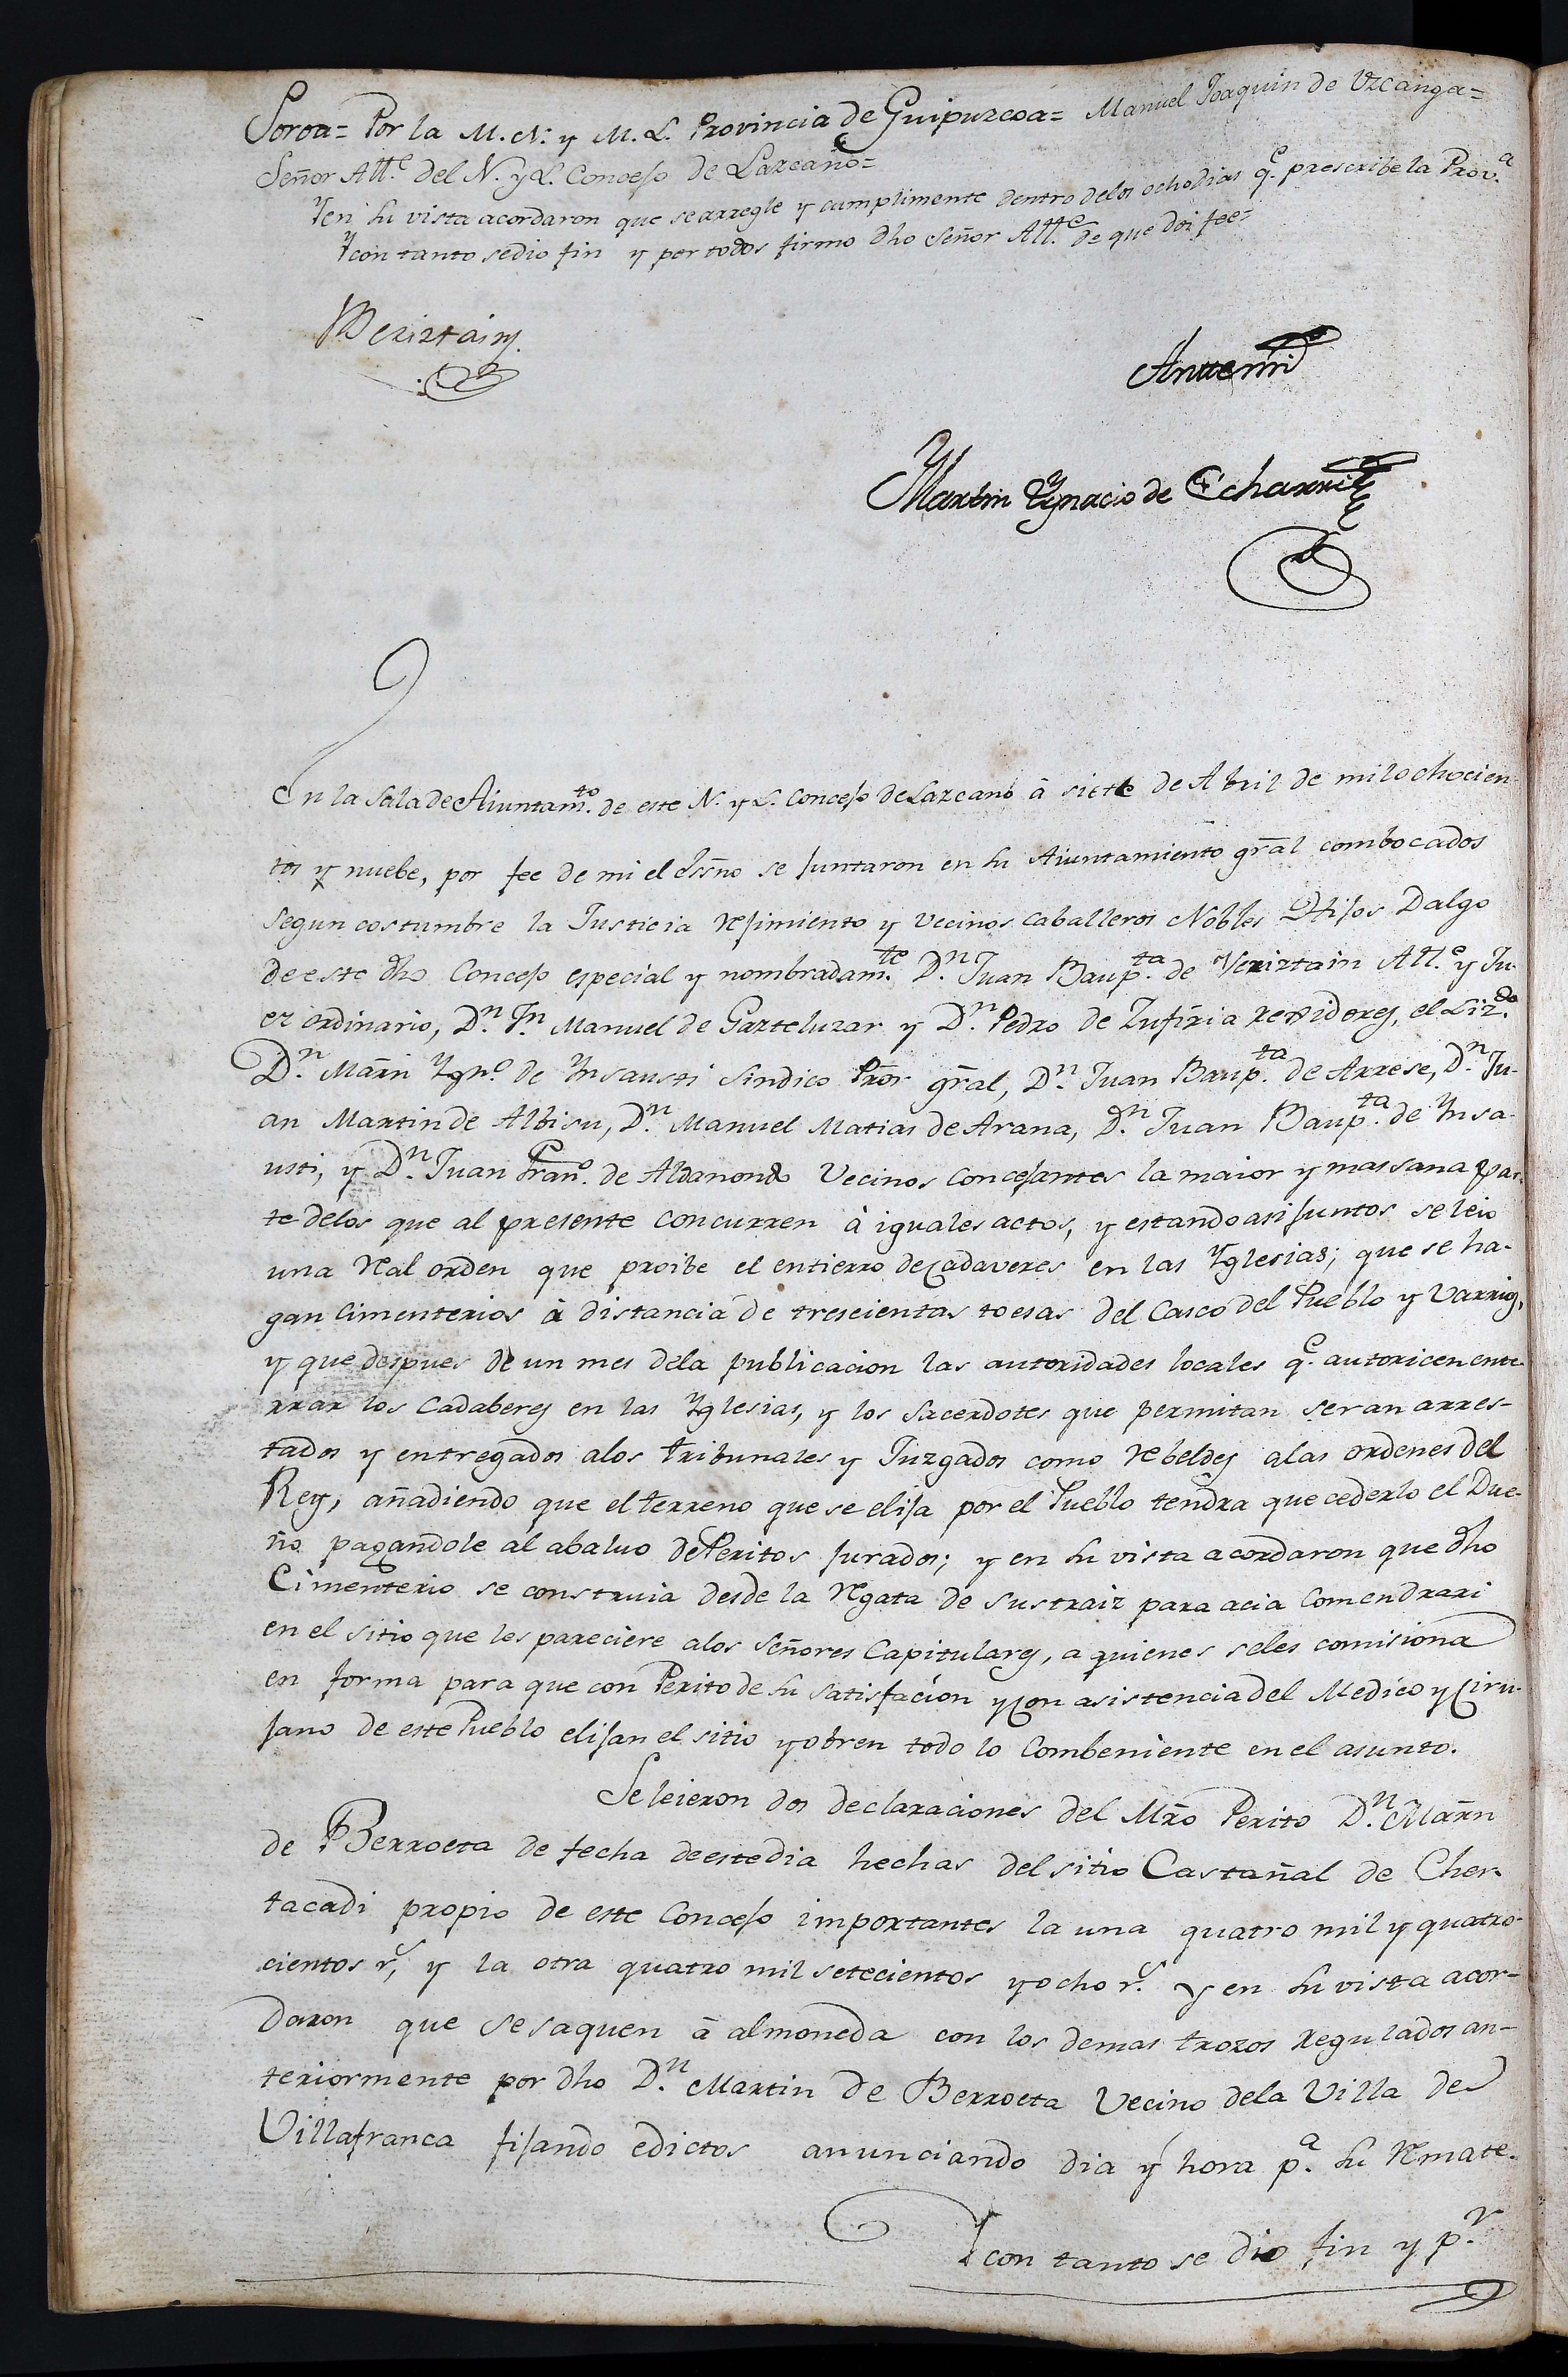 Soroa= Por la M. N. y M. L. Provincia de Guipuzcoa= Manuel Joaquin de Uzcanga=
Señor Att.e del N. y L. Concejo de Lazcano=
Y en su vista acordaron que se arregle y cumplimente dentro delos ocho dias q.e prescribe la Prov.a
Y con tanto sedio fin y por todos firmo dho Señor Att.e de que doi fee=
Veriztain
Antemi
Martin Ygnacio de Echarri
En la Sala de Aiuntam.to de este N. y L. Concejo de Lazcano â siete de Abril de milochocien
tos y nuebe, por fee de mi el Essno se juntaron en su Aiuntamiento gral combocados
segun costumbre la Justicia rejimiento y vecinos caballeros Nobles Hijos Dalgo
de este dho Concejo especial y nombradam.te D.n Juan Baup.ta de Veriztain Att.e y Ju-
ez ordinario, D.n J.n Manuel de Garteluzar y D.n Pedro de Zufiria rexidores, el Liz.do
D.n Marn Ygn.o de Ynsausti Sindico Pror gral, D.n Juan Baup.ta de Arrese, D.n Ju-
an Martin de Albisu, D.n Manuel Matias de Arana, D.n Juan Baup.ta de Ynsa-
usti, y D.n Juan Fran.co de Aldanondo Vecinos concejantes la maior y mas sana par-
te delos que al presente concurren à iguales actos, y estando asi juntos se leio
una Real orden que proibe el entierro de cadaveres en las Yglesias; que se ha-
gan Cimenterios à distancia de trescientas toesas del Casco del Pueblo y Varrios,
y que despues de un mes dela publicacion las autoridades locales q.e autoricen ente-
rrar los Cadaberes en las Yglesias, y los Sacerdotes que permitan seran arres-
tados y entregados alos tribunales y Juzgados como rebeldes alas ordenes del
Rey, añadiendo que el terreno que se elija por el Pueblo tendra que cederlo el Due-
ño pagandole al abaluo de Peritos jurados; y en su vista acordaron que dho
Cimenterio se construia desde la Regata de Sustraiz para acia Comendrari
en el sitio que les pareciere alos Señores Capitulares, a quienes seles comisiona
en forma para que con Perito de su satisfacion y con asistencia del Medico y Ciru-
jano de este Pueblo elijan el sitio y obren todo lo combeniente en el asunto.
Se leieron dos declaraciones del Mro Perito D.n Marn
de Berroeta de fecha de este dia hechas del sitio Castañal de Cher-
tacadi propio de este Concejo importantes la una quatro mil y quatro-
cientos r.s, y la otra quatro mil setecientos y ocho r.s y en su vista acor-
daron que se saquen à almoneda con los demas trozos regulados an-
teriormente por dho D.n Martin de Berroeta Vecino dela Villa de
Villafranca fijando edictos anunciando dia y hora p.a su Remate.
Y con tanto se dio fin y p.r